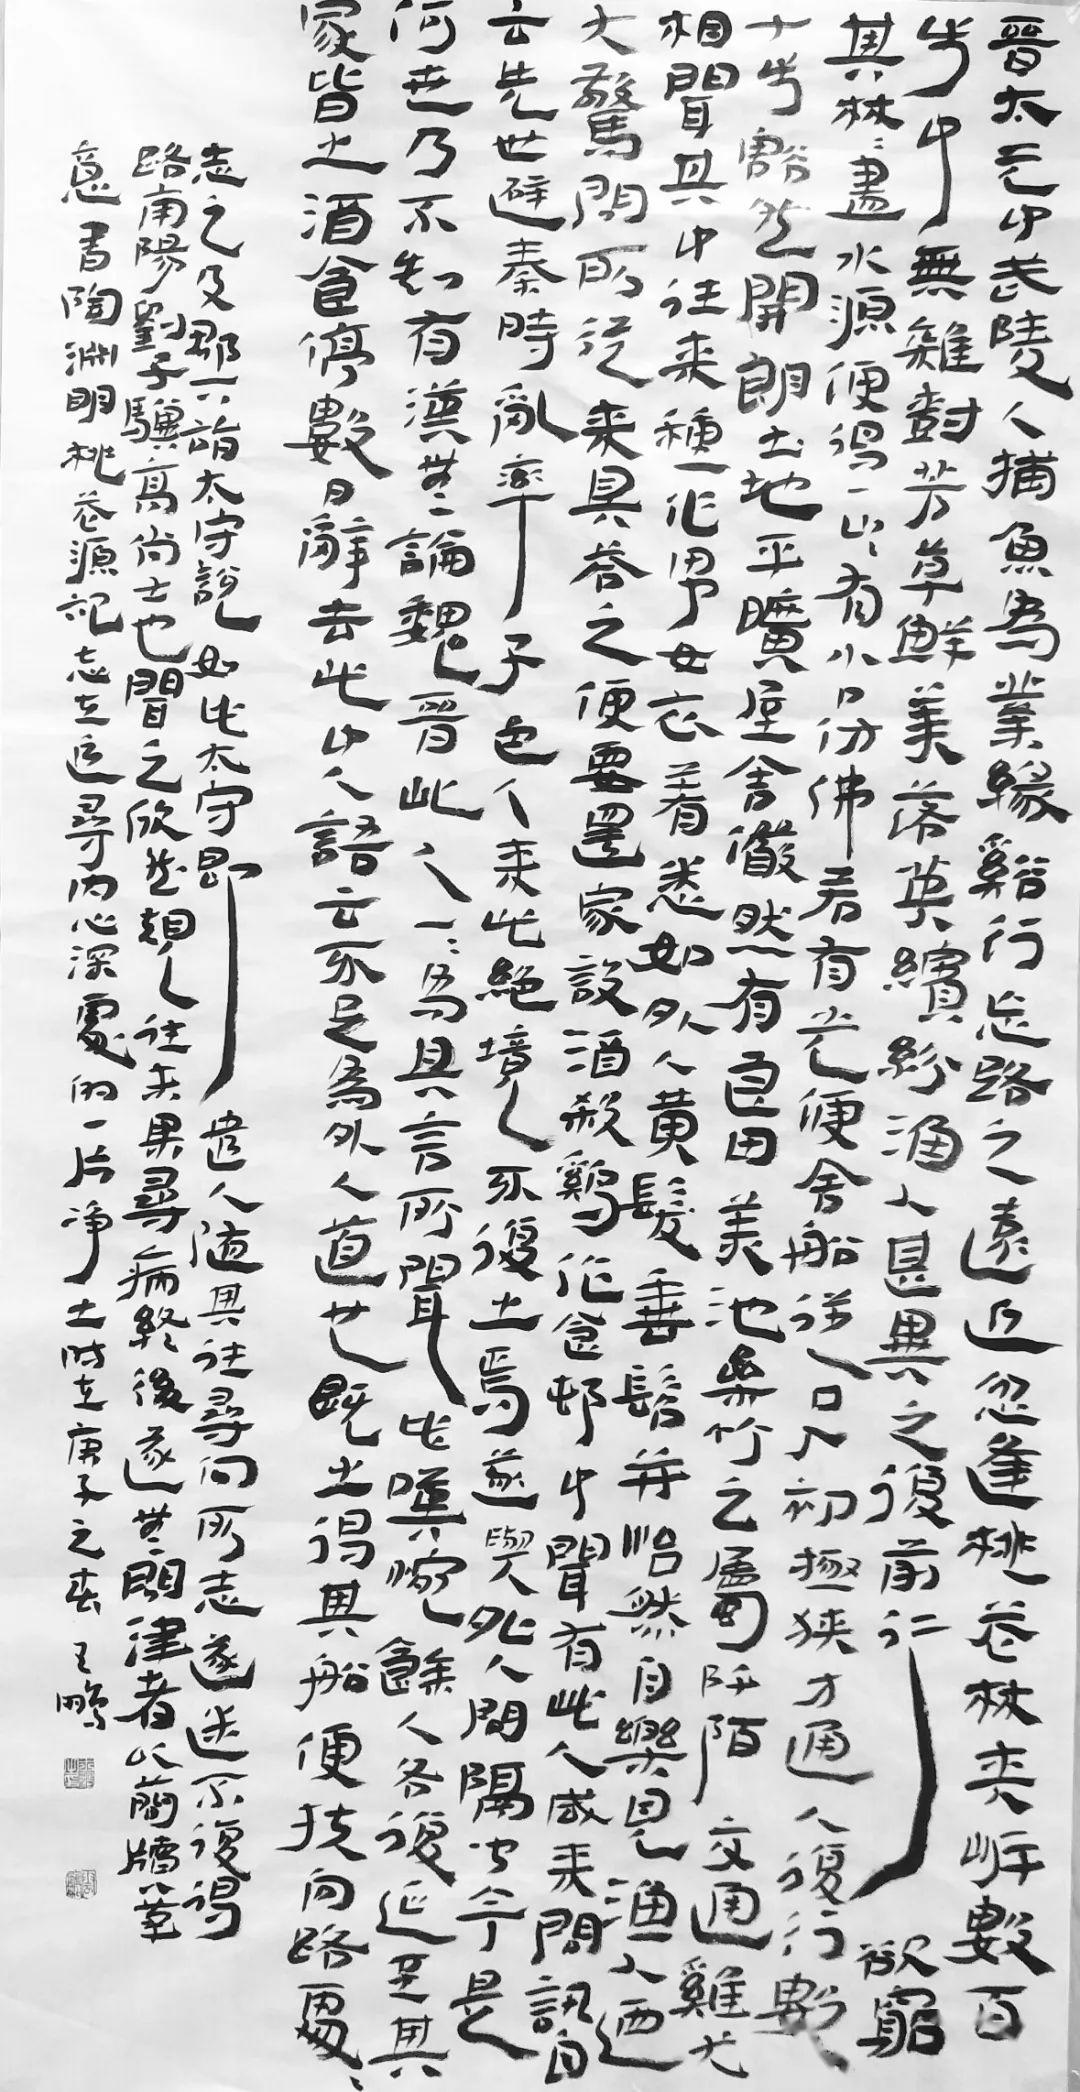 晋太元中武陵人捕魚為業緣谿行忘路之遠近忽逢桃花林夹岸數百
步中無雜對芳草鮮美落英繽紛漁人甚異之復前行欲窮
其林=盡水源便得一山=有小口彷佛若有光便舍船從口入初極狹才通人復行數
十步豁然開朗土地平曠屋舍儼然有良田美池桑竹之屬阡陌交通雞犬
相聞其中往来種作男女衣着悉如外人黄髮垂髫并怡然自樂見漁人乃
大驚問所從来具荅之便要還家設酒殺鷄作食邨中聞有此人咸来問訊自
云先世避秦時亂率子邑人来此絕境不復出焉遂與外人間隔问今是
何世乃不知有漢無=論魏晋此人一=為具言所聞皆嘆惋餘人各復延至其
家皆出酒食停數日辭去此中人語云不足為外人道也既出得其船便扶向路處=
志之及郡下詣太守說如此太守即遣人随其往尋向所志遂迷不復得
路南陽劉子驥高尚士也聞之欣然親往未果尋病終後遂無問津者以簡牘筆
意書陶淵明桃花源記志在追尋内心深處的一片净土时在庚子之春王鵬